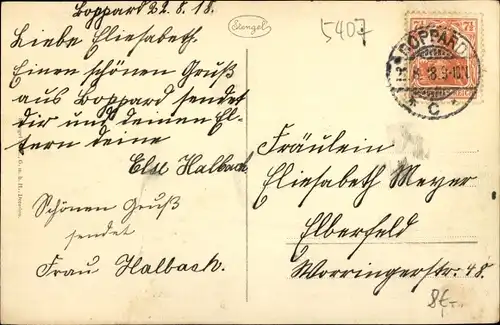 Boppard 22.8.18.
Liebe Eliesabeth.
Einen schönen Gruß
aus Boppard sendet
dir und deinen El-
tern deine
Else Halbach
Schönen Gruß
sendet
Frau Halbach.
Stengel
5407
BOPPARD
C
7½
Fräulein
Eliesabeth Meyer
Elberfeld
Worringerstr. 48.
8€-